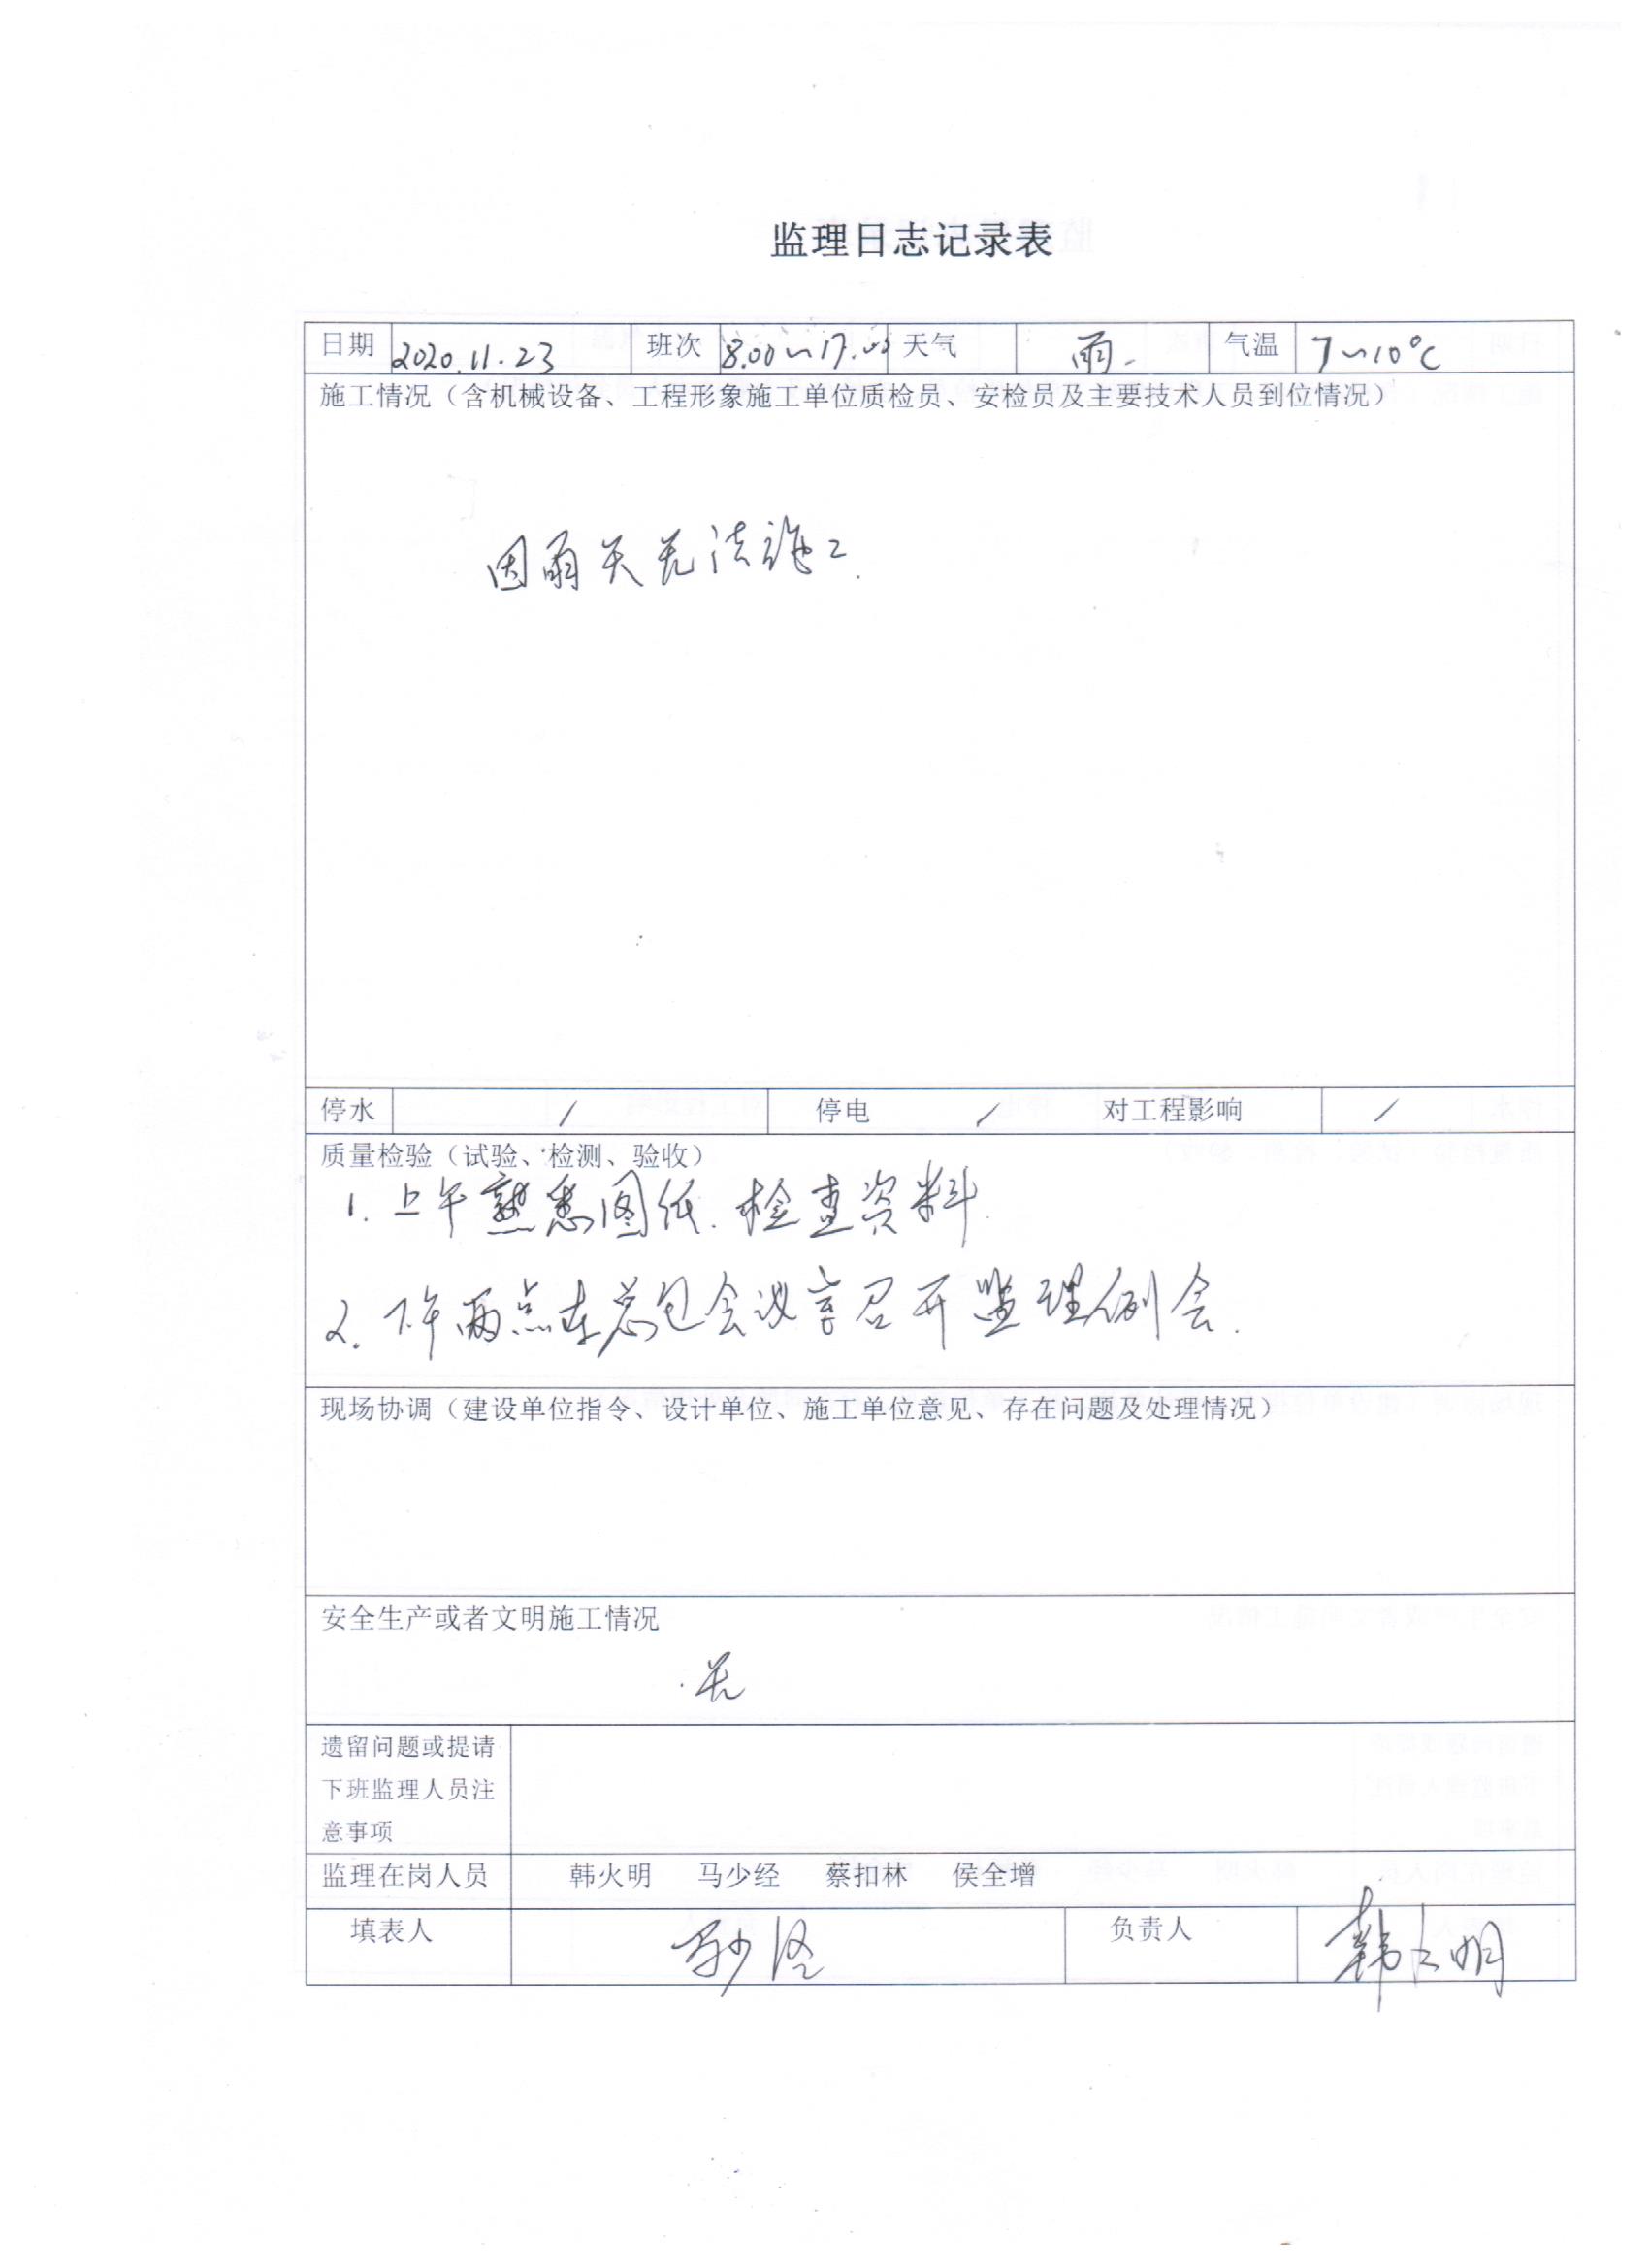 监理日志记录表
日期 2020.11.23 班次 8.00~17.00 天气 雨 气温 7~10℃
施工情况（含机械设备、工程形象施工单位质检员、安检员及主要技术人员到位情况）
因雨天无法施工.
停水 / 停电 / 对工程影响 /
质量检验（试验、检测、验收）
1. 上午熟悉图纸. 检查资料.
2. 下午两点在总包会议室召开监理例会.
现场协调（建设单位指令、设计单位、施工单位意见、存在问题及处理情况）
安全生产或者文明施工情况
无
遗留问题或提请
下班监理人员注
意事项
监理在岗人员 韩火明 马少经 蔡扣林 侯全增
填表人 马少经 负责人 韩火明